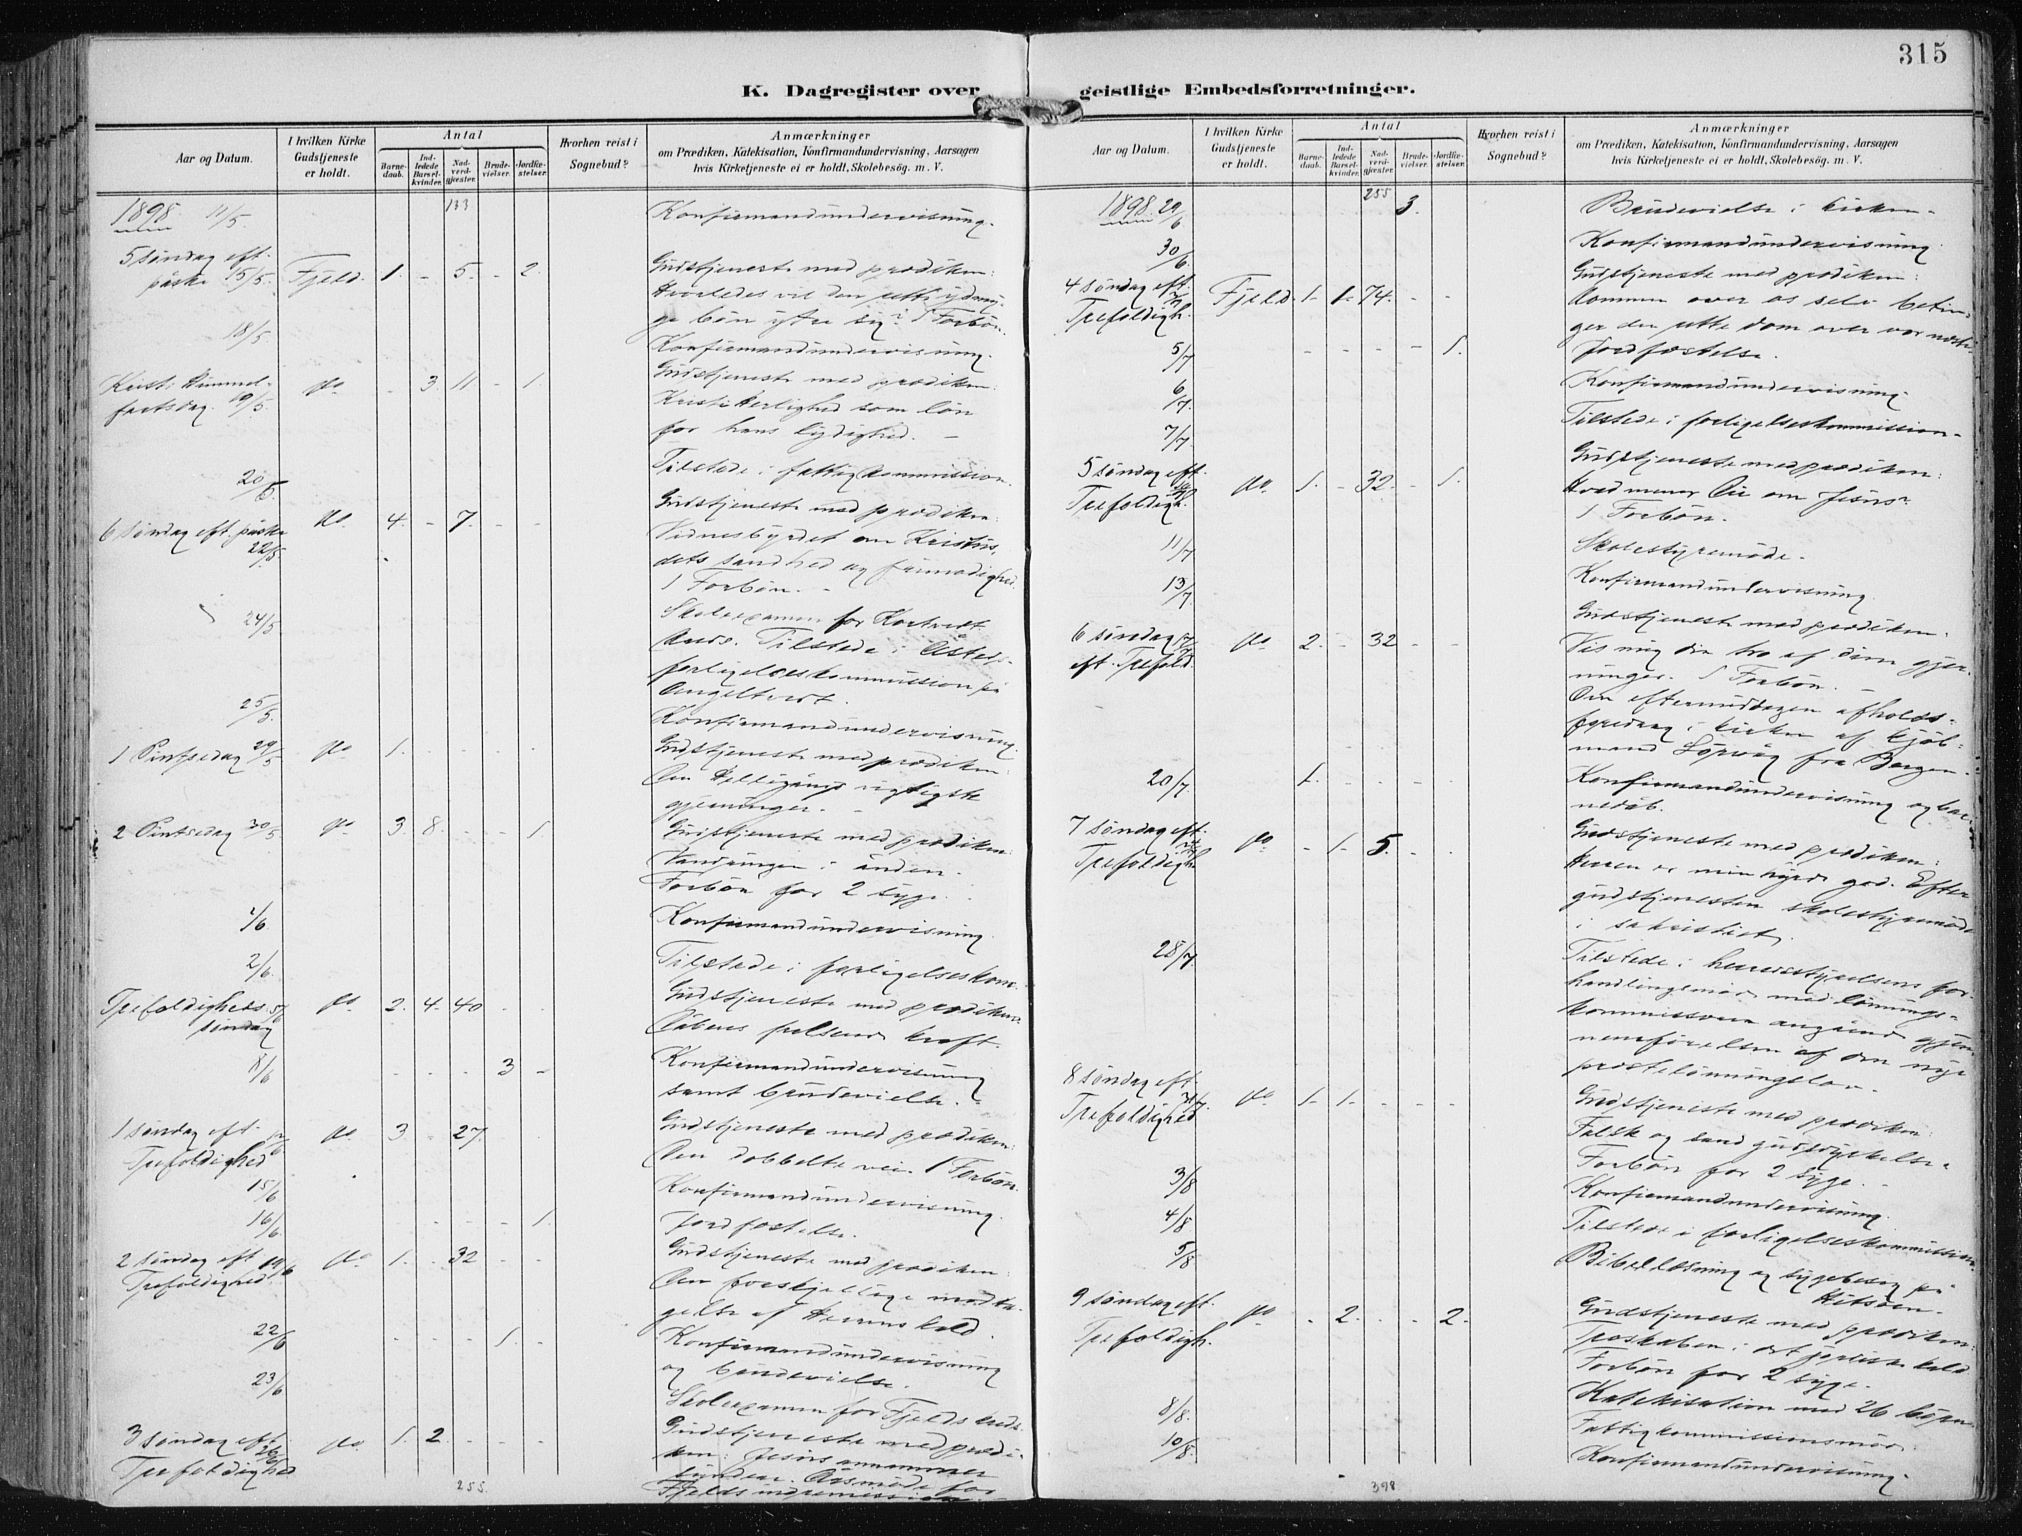 315
K. Dagregister over geistlige Embedsforretninger.
Aar og Datum.
I hvilken Kirke Gudstjeneste er holdt.
Antal
Barnedaab.
Indledede Barselkvinder.
Nadverdgjæster.
Brudevielser.
Jordfæstelser.
Hvorhen reist i Sognebud?
Anmærkninger
om Prædiken, Katekisation, Konfirmandundervisning, Aarsagen
hvis Kirketjeneste ei er holdt, Skolebesøg. m. V.
133
1898 11/5. Konfirmandundervisning.
5 søndag eft. påske 15/5. Fjeld. 1. - 5. - 2. Gudstjeneste med prædiken:
Hvorledes vil den rette ydmy-
ge bøn ytre sig? 1 Forbøn.
18/5 Konfirmandundervisning.
Kristi Himmel-
fartsdag 19/5. do - 3. 11 - 1. Gudstjeneste med prædiken:
Kristi Herlighed som løn
for hans lydighed. -
20/5. Tilstede i fattigkommission.
6 søndag eft. påske 22/5 do 4. - 7. - - Gudstjeneste med prædiken:
Vidnesbyrdet om Kristus,
dets sandhed og frimodighed.
1 Forbøn. -
24/5. Skoleexamen for
Tilstede i Åsteds-
forligelseskommission på
Angeltvedt.
25/5. Konfirmandundervisning.
1 Pintsedag 29/5 do 1. Gudstjeneste med prædiken:
Den Helligånds vigtigste
gjerninger. -
2 Pintsedag 30/5 do 3. 8. - - 1. Gudstjeneste med prædiken:
Vandringen i ånden.
Forbøn for 2 syge.
1/6 Konfirmandundervisning
2/6. Tilstede i forligelseskom.
Trefoldigheds-
søndag 5/6 do 2. 4. 40 - - Gudstjeneste med prædiken:
Dåbens frelsende kraft.
8/6 - - - 3 - Konfirmandundervisning
samt brudevielse. -
1 søndag eft.
Trefoldighed do 3. - 27. Gudstjeneste med prædiken:
Den dobbelte vei. 1 Forbøn.
15/6 Konfirmandundervisning.
16/6 - - - - 1. Jordfæstelse.
2 søndag eft 19/6
Trefoldighed do 1. - 32 - - Gudstjeneste med prædiken:
Den forskjellige modta-
gelse af Herrens kald.
22/6 - - - 1. - Konfirmandundervisning
og brudevielse.
23/6 Skoleexamen for Fjelds kreds
3 søndag eft. 26/6
Trefoldighed do 1. 2. - - - Gudstjeneste med prædi-
ken: Jesus annammer
syndere. Årsmøde for
Fjelds
255.
Aar og Datum.
I hvilken Kirke Gudstjeneste er holdt.
Antal
Barnedaab.
Indledede Barselkvinder.
Nadverdgjæster.
Brudevielser.
Jordfæstelser.
Hvorhen reist i Sognebud?
Anmærkninger
om Prædiken, Katekisation, Konfirmandundervisning, Aarsagen
hvis Kirketjeneste ei er holdt, Skolebesøg. m. V.
255
1898. 29/6 3. Brudevielse i kirken.
30/6. Konfirmandundervisning.
4 søndag eft.
Trefoldigh. Fjeld. 1. 1. 74. - - Gudstjeneste med prædiken:
Dommen over os selv betin-
ger den rette dom over vor næste.
5/7 - - - - 1. Jordfæstelse.
6/7. Konfirmandundervisning.
7/7. Tilstede i forligelseskommission.
5 søndag eft.
Trefoldigh. do 1. - 32. - 1. Gudstjeneste med prædiken:
Hvad mener Du om Jesus?
1 Forbøn.
11/7 Skolestyremøde.
13/7. Konfirmandundervisning.
6 søndag
eft. Trefold. do 2. - 32 - - Gudstjeneste med prædiken:
Vis mig din tro af dine gjer-
ninger. 1 Forbøn.
Om eftermiddagen afholdts
foredrag i kirken af kjøb-
mand Sørvåg fra Bergen.
20/7. 1. - - - - Konfirmandundervisning og bar-
nedåb.
7 søndag eft.
Trefoldigh. do - 1. 5. - Gudstjeneste med prædiken:
Herren er min hyrde god. Efter
gudstjenesten skolestyremøde
i sakristiet.
28/7. Tilstede i herredsstyrelsens for-
handlingsmøde med lønnings-
kommissionen angående gjen-
nemførelsen af den nye
prestelønningslov.
8 søndag eft.
Trefoldighed 31/7. do 1. 1. - - - Gudstjeneste med prædiken:
Falsk og sand gudsdyrkelse.
Forbøn for 2 syge.
3/8 Konfirmandundervisning.
4/8 Tilstede i forligelseskommission.
5/8 Bibellæsning og sygebesøg på
9 søndag eft.
Trefoldigh. do - 2. - - 2. Gudstjeneste med prædiken:
Troskaben i det jordiske kald
Forbøn for 2 syge.
Katekisation med 26 børn.
8/8. Fattigkommissionsmøde.
10/8. Konfirmandundervisning.
398